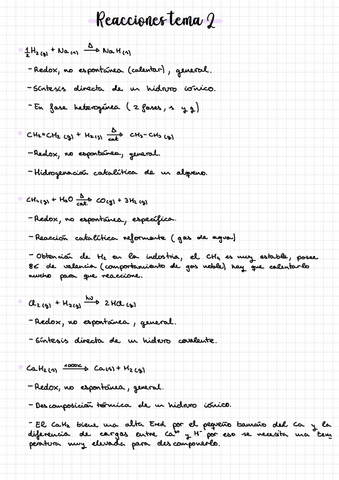 Reacciones tema 2
½H₂(g) + Na(s) →Δ NaH(s)
- Redox, no espontánea (calentar), general.
- Síntesis directa de un hidruro iónico.
- En fase heterogénea (2 fases, s y g)
CH₂=CH₂ (g) + H₂(g) →Δ cat CH₃-CH₃(g)
- Redox, no espontánea, general.
- Hidrogenación catalítica de un alqueno.
CH₄(g) + H₂O →Δ cat. CO(g) + 3H₂(g)
- Redox, no espontánea, específica.
- Reacción catalítica reformente (gas de agua)
- Obtención de H₂ en la industria, el CH₄ es muy estable, posee
8e⁻ de valencia (comportamiento de gas noble) hay que calentarlo
mucho para que reaccione.
Cl₂(g) + H₂(g) →hν 2HCl(g)
- Redox, no espontánea, general.
- Síntesis directa de un hidruro covalente.
CaH₂(s) →1000K Ca(s) + H₂(g)
- Redox, no espontánea, general.
- Descomposición térmica de un hidruro iónico.
- El CaH₂ tiene una alta Ered por el pequeño tamaño del Ca y la
diferencia de cargas entre Ca²⁺ y H⁻ por eso se necesita una tem
peratura muy elevada para descomponerlo.